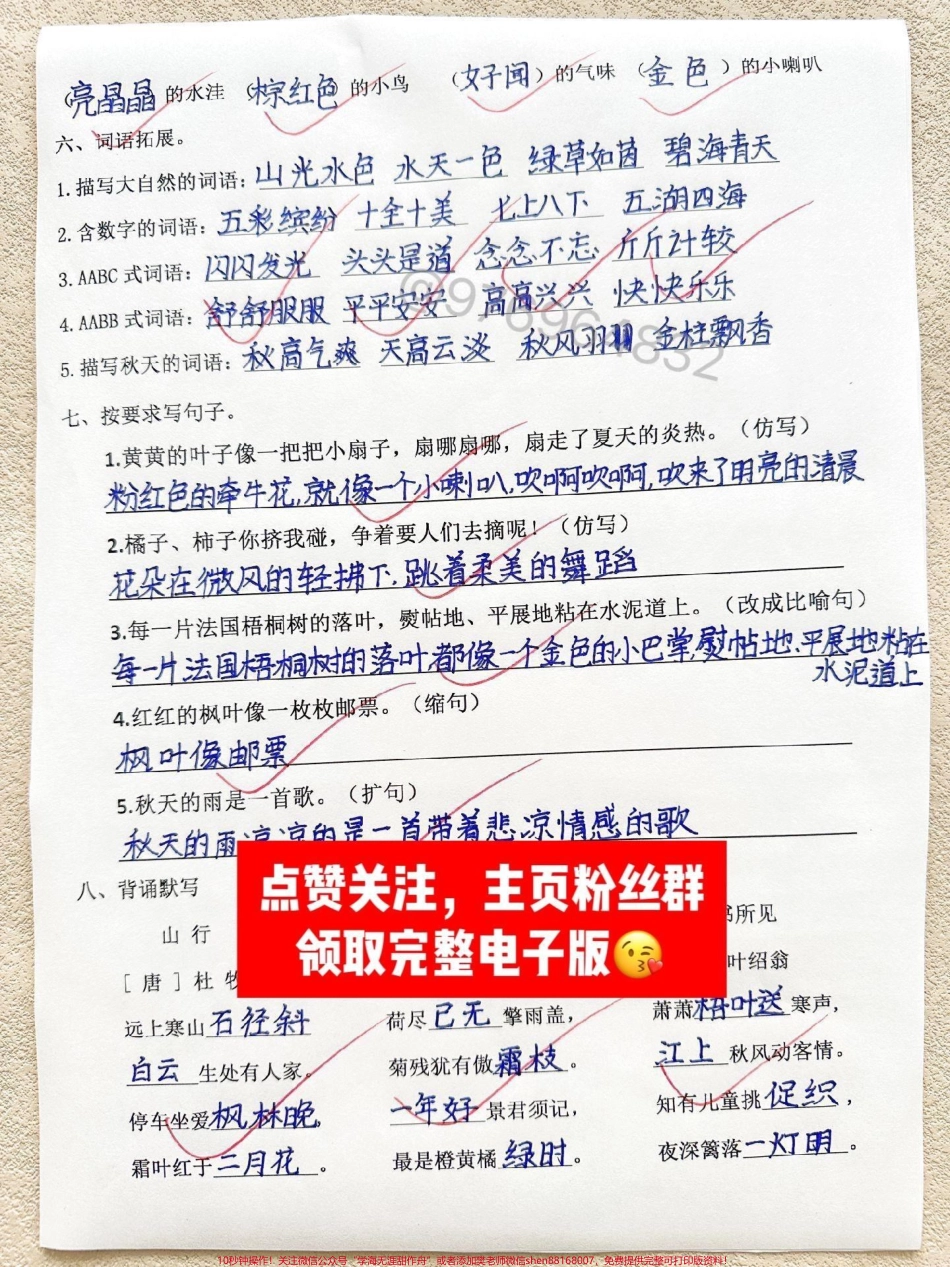 (亮晶晶)的水洼 (棕红色)的小鸟 (好闻)的气味 (金色)的小喇叭
六、词语拓展。
1.描写大自然的词语:山光水色 水天一色 绿草如茵 碧海青天
2.含数字的词语:五彩缤纷 十全十美 七上八下 五湖四海
3.AABC 式词语:闪闪发光 头头是道 念念不忘 斤斤计较
4.AABB 式词语:舒舒服服 平平安安 高高兴兴 快快乐乐
5.描写秋天的词语:秋高气爽 天高云淡 秋风 金桂飘香
@976964832
七、按要求写句子。
1.黄黄的叶子像一把把小扇子,扇哪扇哪,扇走了夏天的炎热。(仿写)
粉红色的牵牛花,就像一个小喇叭,吹啊吹啊,吹来了明亮的清晨
2.橘子、柿子你挤我碰,争着要人们去摘呢!(仿写)
花朵在微风的轻拂下,跳着柔美的舞蹈
3.每一片法国梧桐树的落叶,熨帖地、平展地粘在水泥道上。(改成比喻句)
每一片法国梧桐树的落叶,都像一个金色的小巴掌,熨帖地、平展地粘在
水泥道上
4.红红的枫叶像一枚枚邮票。(缩句)
枫叶像邮票
5.秋天的雨是一首歌。(扩句)
秋天的雨凉凉的是一首带着悲凉情感的歌
八、背诵默写
点赞关注,主页粉丝群
领取完整电子版😘
山 行
[唐]杜 牧
远上寒山石径斜
白云生处有人家。
停车坐爱枫林晚,
霜叶红于二月花。
荷尽已无擎雨盖,
菊残犹有傲霜枝。
一年好景君须记,
最是橙黄橘绿时。
书所见
叶绍翁
萧萧梧叶送寒声,
江上秋风动客情。
知有儿童挑促织,
夜深篱落一灯明。
10秒钟操作!关注微信公众号“学海无涯甜作舟”或者添加樊老师微信shen88168007,免费提供完整可打印版资料!